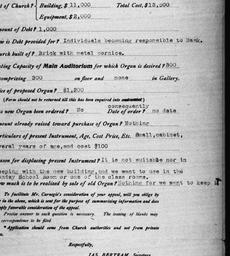 of Church? - Building, $ 11,000 Total Cost, $13,000
Equipment, $2,000
mount of Debt? 1,000
w is Debt provided for? Individuals becoming responsible to Bank.
urch built of? Brick with metal cornice.
ating Capacity of Main Auditorium for which Organ is desired? 300
omprizing 300 on floor and none in Gallery.
ice of proposed Organ? $1,200
(Form should not be returned till this has been inquired into
consequently
s new Organ been ordered? No Date of order? no date
ount already raised toward purchase of Organ? Nothing
rticulars of present Instrument, Age, Cost Price, Etc. Small, cabinet,
veral years of age, and cost $100
ason for displacing present Instrument? It is not suitable nor in
eeping with the new building, and we want to use in the
unday School Room or one of the class rooms.
w much is to be realised by sale of old Organ? Nothing for we want to keep it
To facilitate Mr. Carnegie's consideration of your appeal, will you oblige by
in the above, which is sent for the purpose of summarising information and does
ply favorable consideration of the appeal.
Precise answer to each question is necessary. The training of blanks may
correspondence to be filed
* Application should come from Church authorities and not from private
Respectfully,
JAS. BERTRAM, Secretary